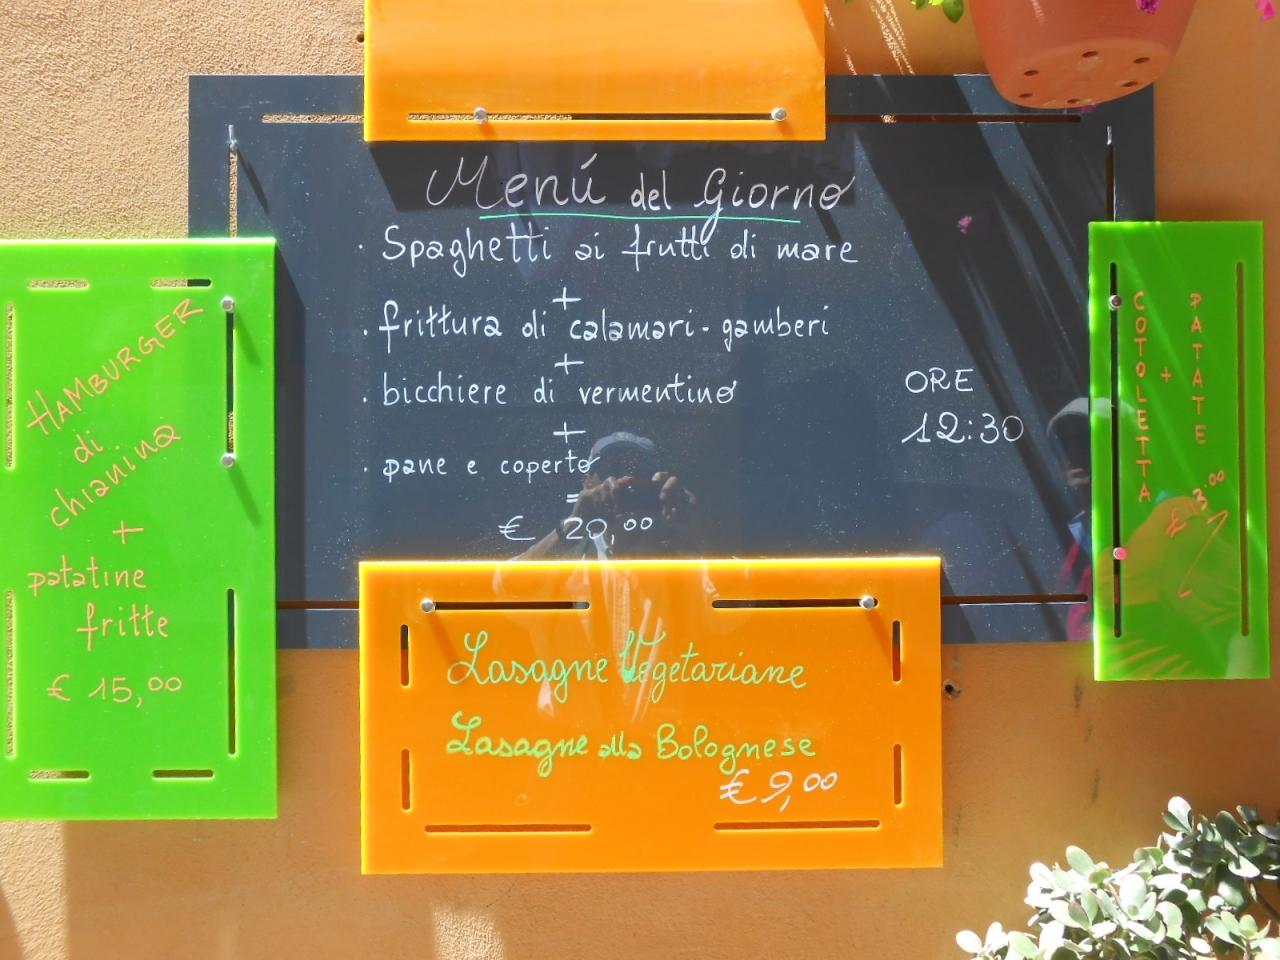 Menú del Giorno
· Spaghetti ai frutti di mare
+
· frittura di calamari - gamberi
+
· bicchiere di vermentino
+
· pane e coperto
=
€ 20,00
ORE
12:30
HAMBURGER
di
chianina
+
patatine
fritte
€ 15,00
Lasagne Vegetariane
Lasagne alla Bolognese
€ 9,00
COTOLETTA
+
PATATE
€ 13.00